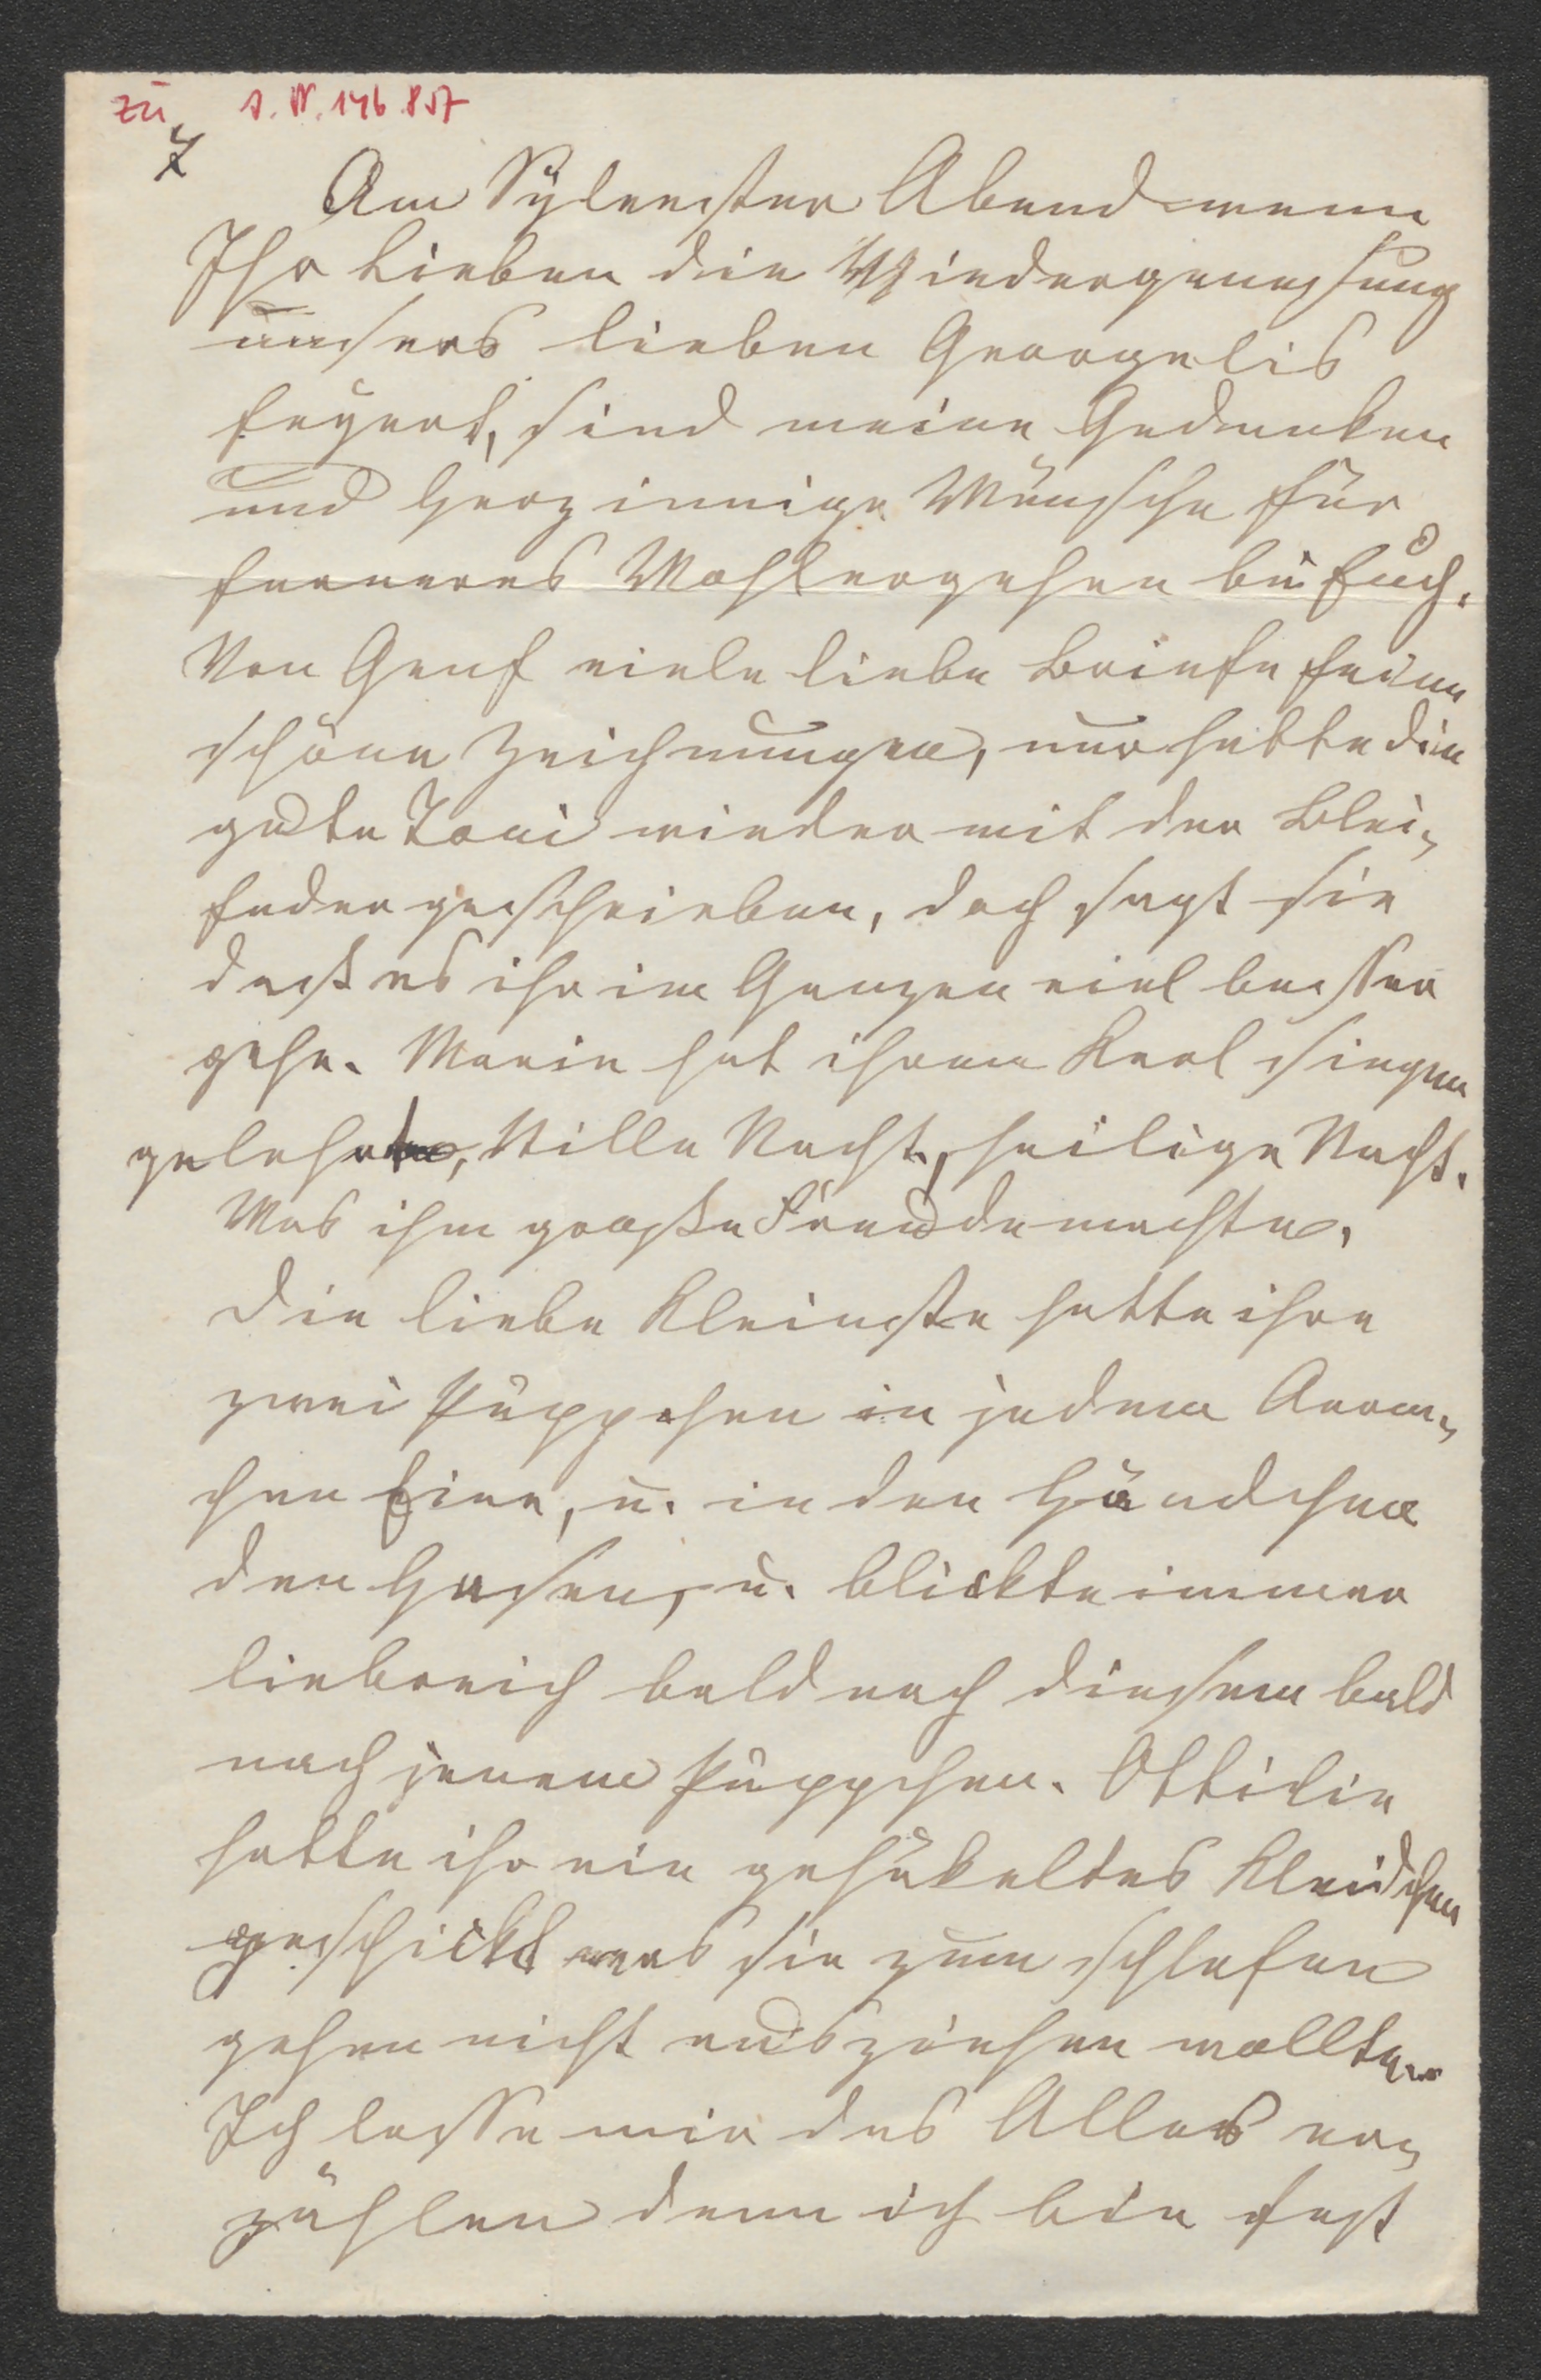 zu I. N. 146.857
7
Am Sylvester Abend wenn
Ihr Lieben die Wiedergenesung
unsers lieben Georgelis
feyert, sind meine Gedanken
und herzinnige Wünsche für
ferneres Wohlergehen bei Euch.
Von Genf viele liebe Briefe feine
schöne Zeichnungen, nur hatte die
gute Toni wieder mit der Blei-
feder geschrieben, doch sagt sie
daß es ihr im Ganzen viel besser
gehe. Marie hat ihrem Karl singen
gelehrt, Stille Nacht, heilige Nacht.
Was ihm große Freude machte.
Die liebe Kleinste hatte ihre
zwei Püppchen in jedem Aerm-
chen Eine, u. in den Händchen
den Hasen, u. blickte immer
liebreich bald nach diesem bald
nach jenem Püppchen. Ottilie
hatte ihr ein gehäkeltes Kleidchen
geschickt was sie zum schlafen
gehen nicht ausziehen wollte.
Ich lasse mir das Alles er-
zählen denn ich bin fest